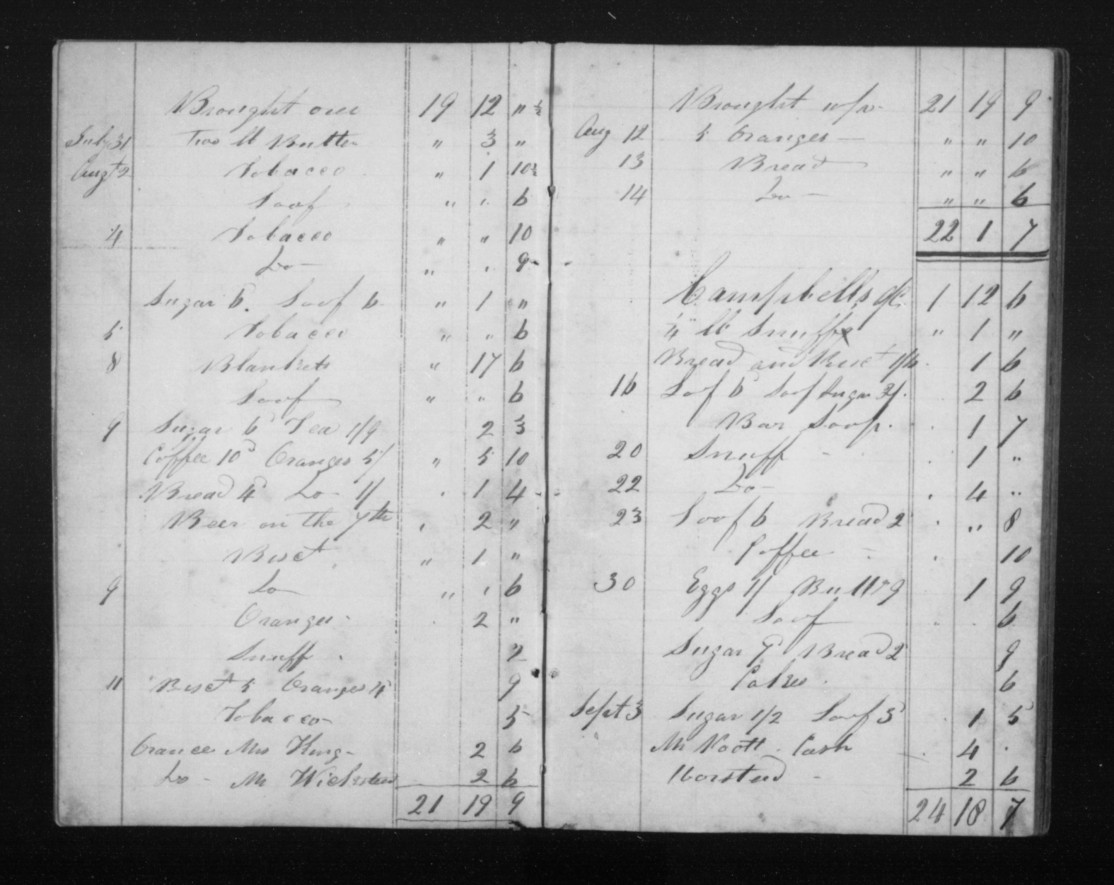 Brought over 19 12 " ½
July 31 Two lb Butter " 3 "
Augt 2 Tobacco " 1 10½
Loof " " 6
4 Tobacco " " 10
Do " " 9
Sugar 6. Loof 6 " 1 "
5 Tobacco " " 6
8 Blankets " 17 6
Loof " " 6
9 Sugar 6 Tea 1/9 2 3
Coffee 10d Oranges 5/ " 5 10
Bread 4d Do 1/ . 1 4
Beer on the 7th . 2 "
Biset " 1 "
9 Do " " 6
Oranges . 2 "
Snuff . 2
11 Biset 5 Oranges 4 9
Tobacco 5
Mrs King 2 6
Do Mr 2 6
21 19 9
Brought o/r 21 19 9
Aug 12 5 Oranges " " 10
13 Bread " " 6
14 Do " " 6
22 1 7
Campbells 1 12 6
lb Snuff " 1 "
Bread and Biset 1/6 . 1 6
16 Lof 6 Loof Sugar 2/. . 2 6
Bar Soap . . 1 7
20 Snuff - . 1 "
22 Do . 4 "
23 Loof 6 Bread 2 . " 8
Coffee - . 10
30 Eggs 1/ Butt 9 1 9
Loof . . 6
Sugar 7 Bread 2 9
Cakes . 6
Sept 3 Sugar 1/2 Loof 3 . 1 5
Mr Noott . Cash 4 .
Worsted - 2 6
24 18 7